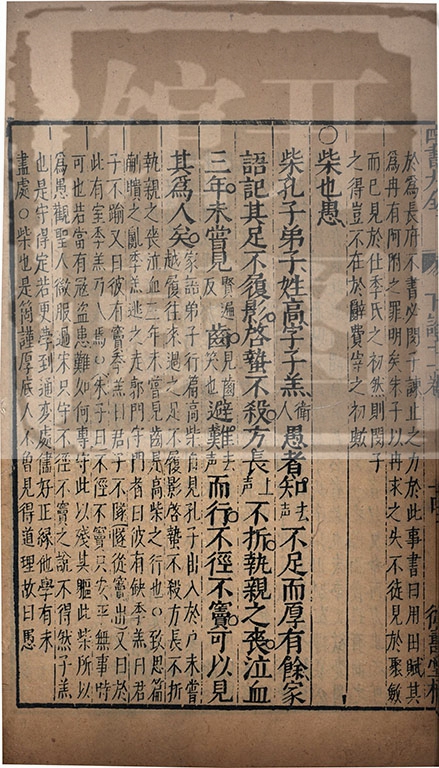 書大全 下論十一卷
於為長府不書必閔子諫止之力於此事書曰用田賦其
為冉有阿附之罪明矣朱子以冉求之失不徒見於聚斂
而已見於仕季氏之初然則閔子
之得豈不在於辭費宰之初歟
○柴也愚
柴孔子弟子姓高字子羔衛人愚者知去聲不足而厚有餘家
語記其足不履影啓蟄不殺方長上聲不折執親之喪泣血
三年未嘗見賢遍反齒見齒笑也避難去聲而行不徑不竇可以見
其為人矣家語弟子行篇高柴自見孔子出入於戶未嘗
越履往來過之足不履影啓蟄不殺方長不折
執親之喪泣血三年未嘗見齒是高柴之行也○致思篇
蒯聵之亂季羔逃之走郭門守門者曰彼有缺季羔曰君
子不踰又曰彼有竇季羔曰君子不隧隧從竇出又曰於
此有室季羔乃入焉○朱子曰不徑不竇只安平無事時
可也若當有寇盜患難如何專守此以殘其軀此柴所以
為愚觀聖人微服過宋只守不徑不竇之說不得然子羔
也是守得定若更學到通變處儘好正緣他學有未
盡處○柴也是箇謹厚底人不曾見得道理故曰愚